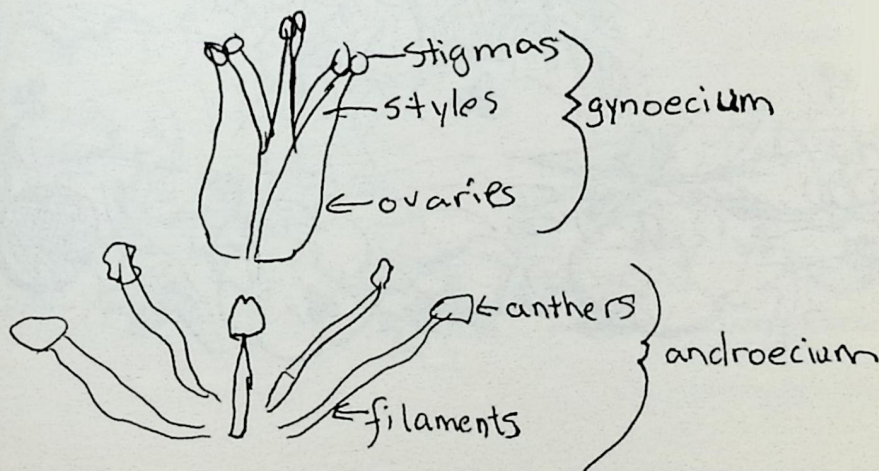 stigmas
styles
gynoecium
ovaries
anthers
androecium
filaments